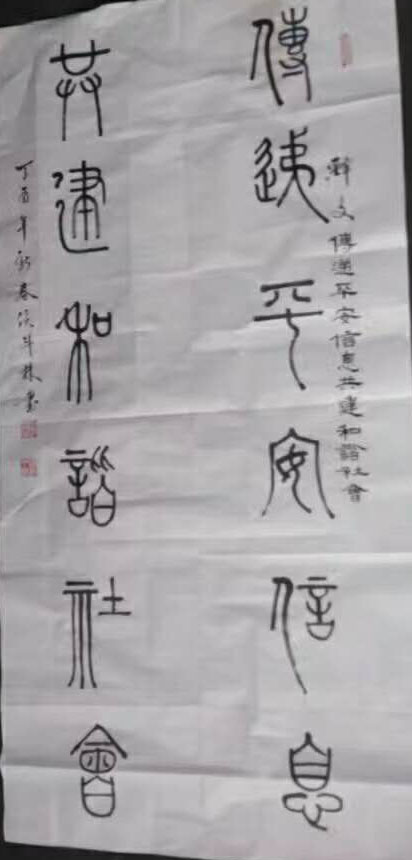 释文傳递平安信息共建和諧社會
傳递平安信息
共建和諧社會
丁酉年新春侯斗林書